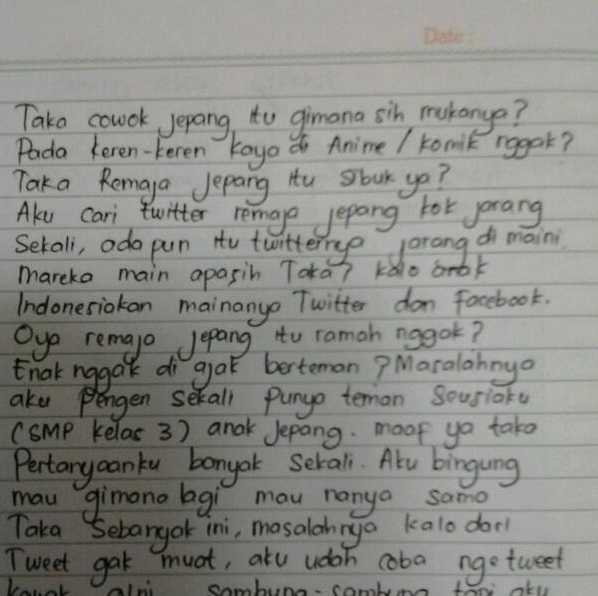 Date:
Taka cowok jepang itu gimana sih mukanya?
Pada keren-keren kaya di Anime / komik nggak?
Taka Remaja Jepang itu sibuk ya?
Aku cari twitter remaja jepang kok jarang
Sekali, ada pun itu twitternya jarang di maini
mareka main apasih Taka? kalo anak
Indonesiakan mainanya Twitter dan Facebook.
Oya remaja Jepang itu ramah nggak?
Enak nggak di ajak berteman? Masalahnya
aku pengen sekali punya teman Seusiaku
(SMP kelas 3) anak Jepang. maaf ya taka
Pertanyaanku banyak sekali. Aku bingung
mau gimana lagi mau nanya sama
Taka Sebanyak ini, masalahnya kalo dari
Tweet gak muat, aku udah coba nge tweet
sambung-sambung tapi aku